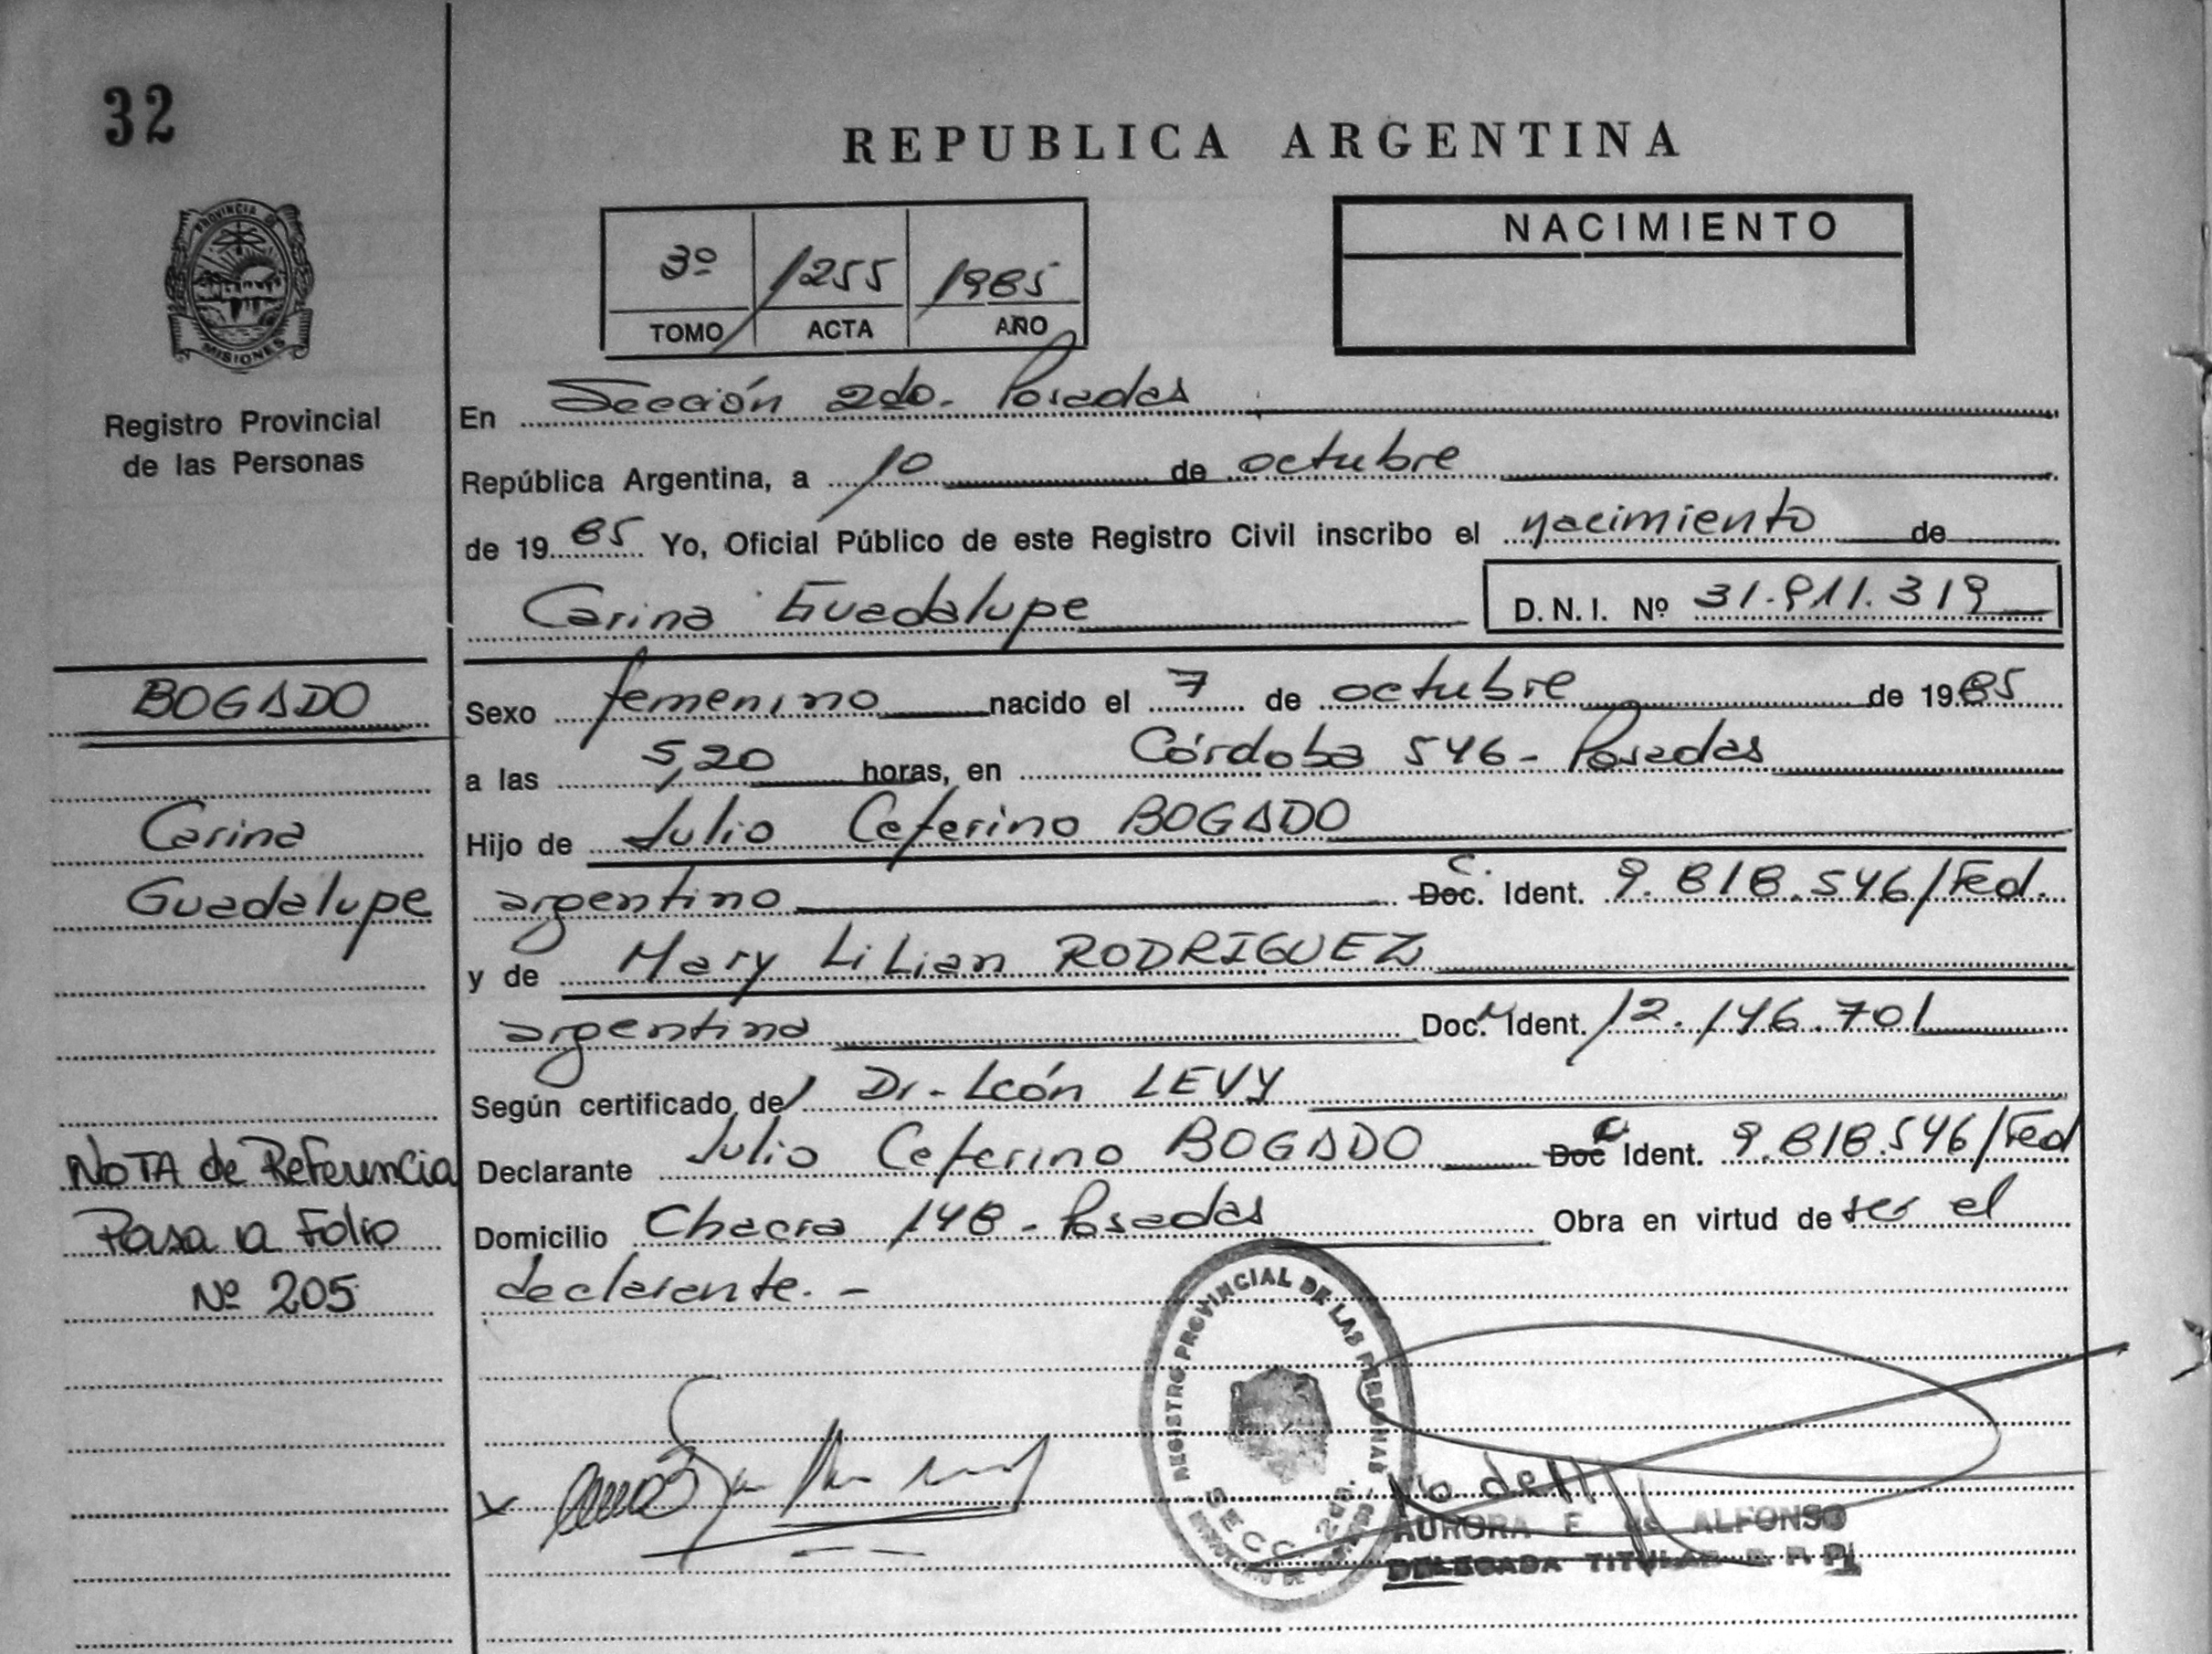 32
REPUBLICA ARGENTINA
PROVINCIA DE
MISIONES
Registro Provincial
de las Personas
3º 1255 1985
TOMO ACTA AÑO
NACIMIENTO
En Sección 2do. Posadas
República Argentina, a 10 de octubre
de 1985 Yo, Oficial Público de este Registro Civil inscribo el nacimiento de
Carina Guadalupe D.N.I. Nº 31.911.319
BOGADO
Sexo femenino nacido el 7 de octubre de 1985
a las 5,20 horas, en Córdoba 546 - Posadas
Carina
Hijo de Julio Ceferino BOGADO
Guadalupe
argentino Doc. C. Ident. 9.818.546/Fed.
y de Mary Lilian RODRIGUEZ
argentina Doc. Ident. 12.146.701
Según certificado de Dr. León LEVY
NOTA de Referencia
Declarante Julio Ceferino BOGADO Doc C Ident. 9.818.546/Fed
Pasa a Folio
Domicilio Chacra 148 - Posadas Obra en virtud de ser el
Nº 205
declarante. -
REGISTRO PROVINCIAL DE LAS PERSONAS
SECC. 2da.
AURORA F. de ALFONSO
DELEGADA TITULAR